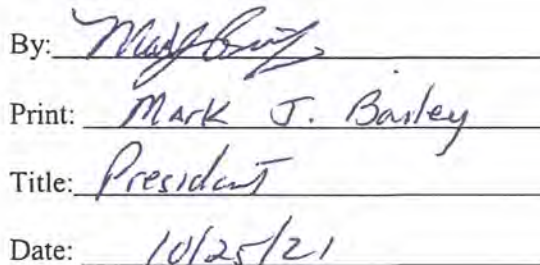 By:
Print: Mark J. Bailey
Title: President
Date: 10/25/21